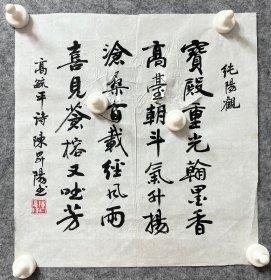 純陽觀
寶殿重光翰墨香
高臺朝斗氣升揚
滄桑百載經風雨
喜見蒼榕又吐芳
高毓平诗 陳昇陽书